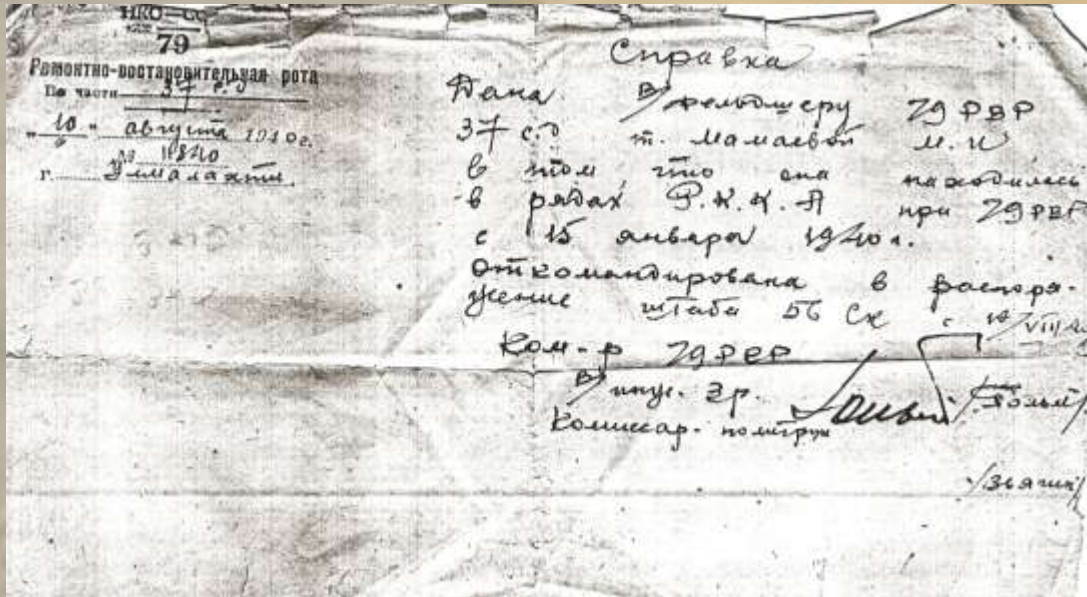 НКО-СС
79
Ремонтно-востановительная рота
По части 37 с.д
"10" августа 1940г.
№ 11840
г. Уималахти.
Справка
Дана В/фельдшеру 79 РВР
37 с.д т. Мамаевой М.И
в том что она находилась
в рядах Р.К.К.А при 79 РВР
с 15 января 1940г.
Откомандирована в распоря-
жение штаба 56 СК с 10/VIII 40
Ком-р 79 РВР
В/инж. 3 р.
Комиссар. политрук